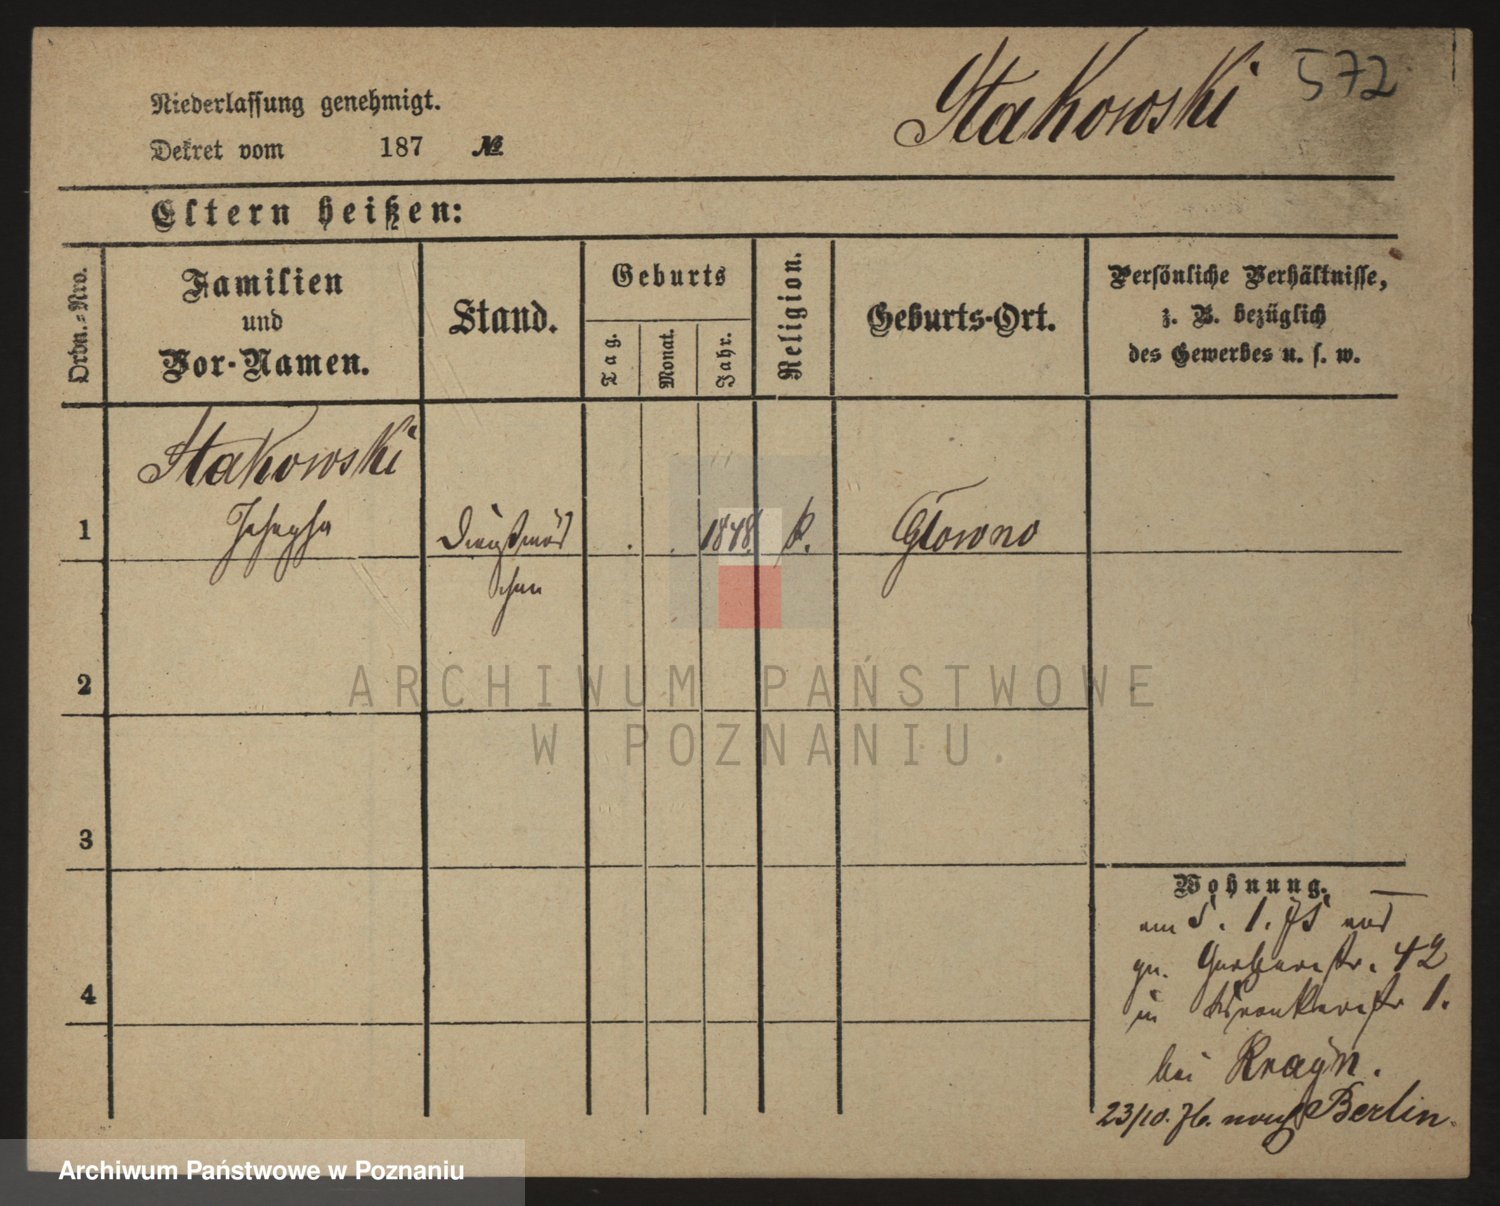 Stakowski 572
Niederlassung genehmigt.
Dekret vom 187 №
Eltern heißen:
Ordn.-Nro.
Familien
und
Vor-Namen.
Stand.
Geburts
Tag.
Monat.
Jahr.
Religion.
Geburts-Ort.
Persönliche Verhältnisse,
z. B. bezüglich
des Gewerbes u. s. w.
Stakowski
1 Josepha Dienstmäd . . 1848 k. Głowno
chen
2
3
4
Wohnung.
am 5. 1. 75 aus
gr. Gerberstr. 42
in Wronkerstr 1.
bei Kragn.
23/10. 76. nach Berlin.
ARCHIWUM PAŃSTWOWE
W POZNANIU.
Archiwum Państwowe w Poznaniu